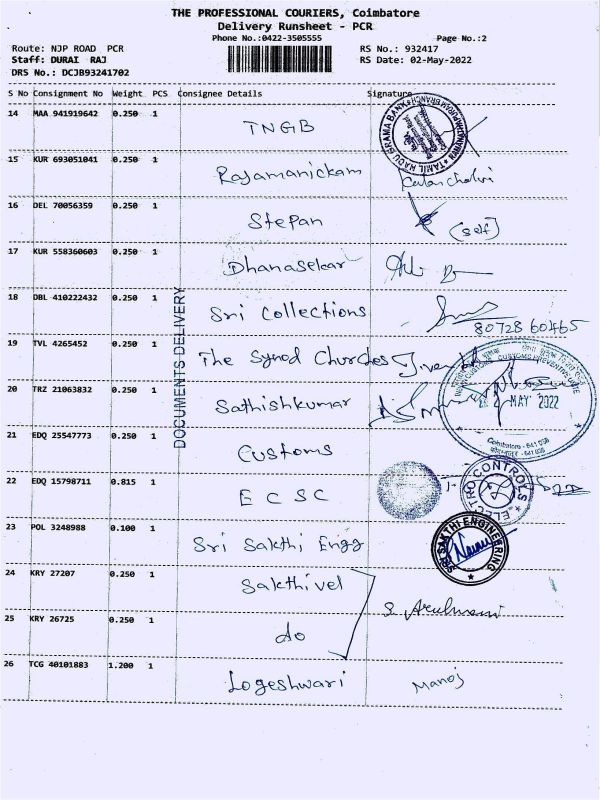 THE PROFESSIONAL COURIERS, Coimbatore
Delivery Runsheet - PCR
Phone No.:0422-3505555 Page No.:2
Route: NJP ROAD PCR RS No.: 932417
Staff: DURAI RAJ RS Date: 02-May-2022
DRS No.: DCJB93241702
S No Consignment No Weight PCS Consignee Details Signature
14 MAA 941919642 0.250 1 TNGB
TAMIL NADU GRAMA BANK
15 KUR 693051041 0.250 1 Rajamanickam
16 DEL 70056359 0.250 1 Stepan (self)
17 KUR 558360603 0.250 1 Dhanasekar
18 DBL 410222432 0.250 1 Sri Collections
80728 60465
DOCUMENTS DELIVERY
19 TVL 4265452 0.250 1 The Synod Churches
20 TRZ 21063832 0.250 1 Sathishkumar
CUSTOMS PREVENTIVE UNIT
MAY 2022
Coimbatore - 641 018
21 EDQ 25547773 0.250 1 Customs
22 EDQ 15798711 0.815 1 ECSC
ELECTRO CONTROLS
23 POL 3248988 0.100 1 Sri Sakthi Engg
SRI SAKTHI ENGINEERING
24 KRY 27207 0.250 1 Sakthivel
25 KRY 26725 0.250 1 do
26 TCG 40101883 1.200 1 Logeshwari Manoj